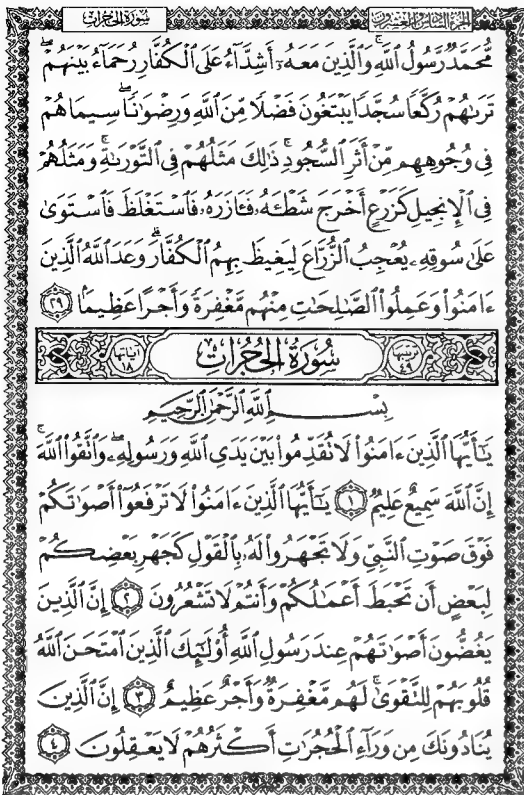 الجزء السادس والعشرون
سورة الحجرات
مُّحَمَّدٌ رَّسُولُ ٱللَّهِ ۚ وَٱلَّذِينَ مَعَهُۥٓ أَشِدَّآءُ عَلَى ٱلْكُفَّارِ رُحَمَآءُ بَيْنَهُمْ ۖ
تَرَىٰهُمْ رُكَّعًا سُجَّدًا يَبْتَغُونَ فَضْلًا مِّنَ ٱللَّهِ وَرِضْوَٰنًا ۖ سِيمَاهُمْ
فِى وُجُوهِهِم مِّنْ أَثَرِ ٱلسُّجُودِ ۚ ذَٰلِكَ مَثَلُهُمْ فِى ٱلتَّوْرَىٰةِ ۚ وَمَثَلُهُمْ
فِى ٱلْإِنجِيلِ كَزَرْعٍ أَخْرَجَ شَطْـَٔهُۥ فَـَٔازَرَهُۥ فَٱسْتَغْلَظَ فَٱسْتَوَىٰ
عَلَىٰ سُوقِهِۦ يُعْجِبُ ٱلزُّرَّاعَ لِيَغِيظَ بِهِمُ ٱلْكُفَّارَ ۗ وَعَدَ ٱللَّهُ ٱلَّذِينَ
ءَامَنُوا۟ وَعَمِلُوا۟ ٱلصَّـٰلِحَـٰتِ مِنْهُم مَّغْفِرَةً وَأَجْرًا عَظِيمًۢا ٢٩
ترتيبها ٤٩ سُورَةُ الحُجُرَاتِ آياتها ١٨
بِسْمِ ٱللَّهِ ٱلرَّحْمَـٰنِ ٱلرَّحِيمِ
يَـٰٓأَيُّهَا ٱلَّذِينَ ءَامَنُوا۟ لَا تُقَدِّمُوا۟ بَيْنَ يَدَىِ ٱللَّهِ وَرَسُولِهِۦ ۖ وَٱتَّقُوا۟ ٱللَّهَ ۚ
إِنَّ ٱللَّهَ سَمِيعٌ عَلِيمٌ ١ يَـٰٓأَيُّهَا ٱلَّذِينَ ءَامَنُوا۟ لَا تَرْفَعُوٓا۟ أَصْوَٰتَكُمْ
فَوْقَ صَوْتِ ٱلنَّبِىِّ وَلَا تَجْهَرُوا۟ لَهُۥ بِٱلْقَوْلِ كَجَهْرِ بَعْضِكُمْ
لِبَعْضٍ أَن تَحْبَطَ أَعْمَـٰلُكُمْ وَأَنتُمْ لَا تَشْعُرُونَ ٢ إِنَّ ٱلَّذِينَ
يَغُضُّونَ أَصْوَٰتَهُمْ عِندَ رَسُولِ ٱللَّهِ أُو۟لَـٰٓئِكَ ٱلَّذِينَ ٱمْتَحَنَ ٱللَّهُ
قُلُوبَهُمْ لِلتَّقْوَىٰ ۚ لَهُم مَّغْفِرَةٌ وَأَجْرٌ عَظِيمٌ ٣ إِنَّ ٱلَّذِينَ
يُنَادُونَكَ مِن وَرَآءِ ٱلْحُجُرَٰتِ أَكْثَرُهُمْ لَا يَعْقِلُونَ ٤